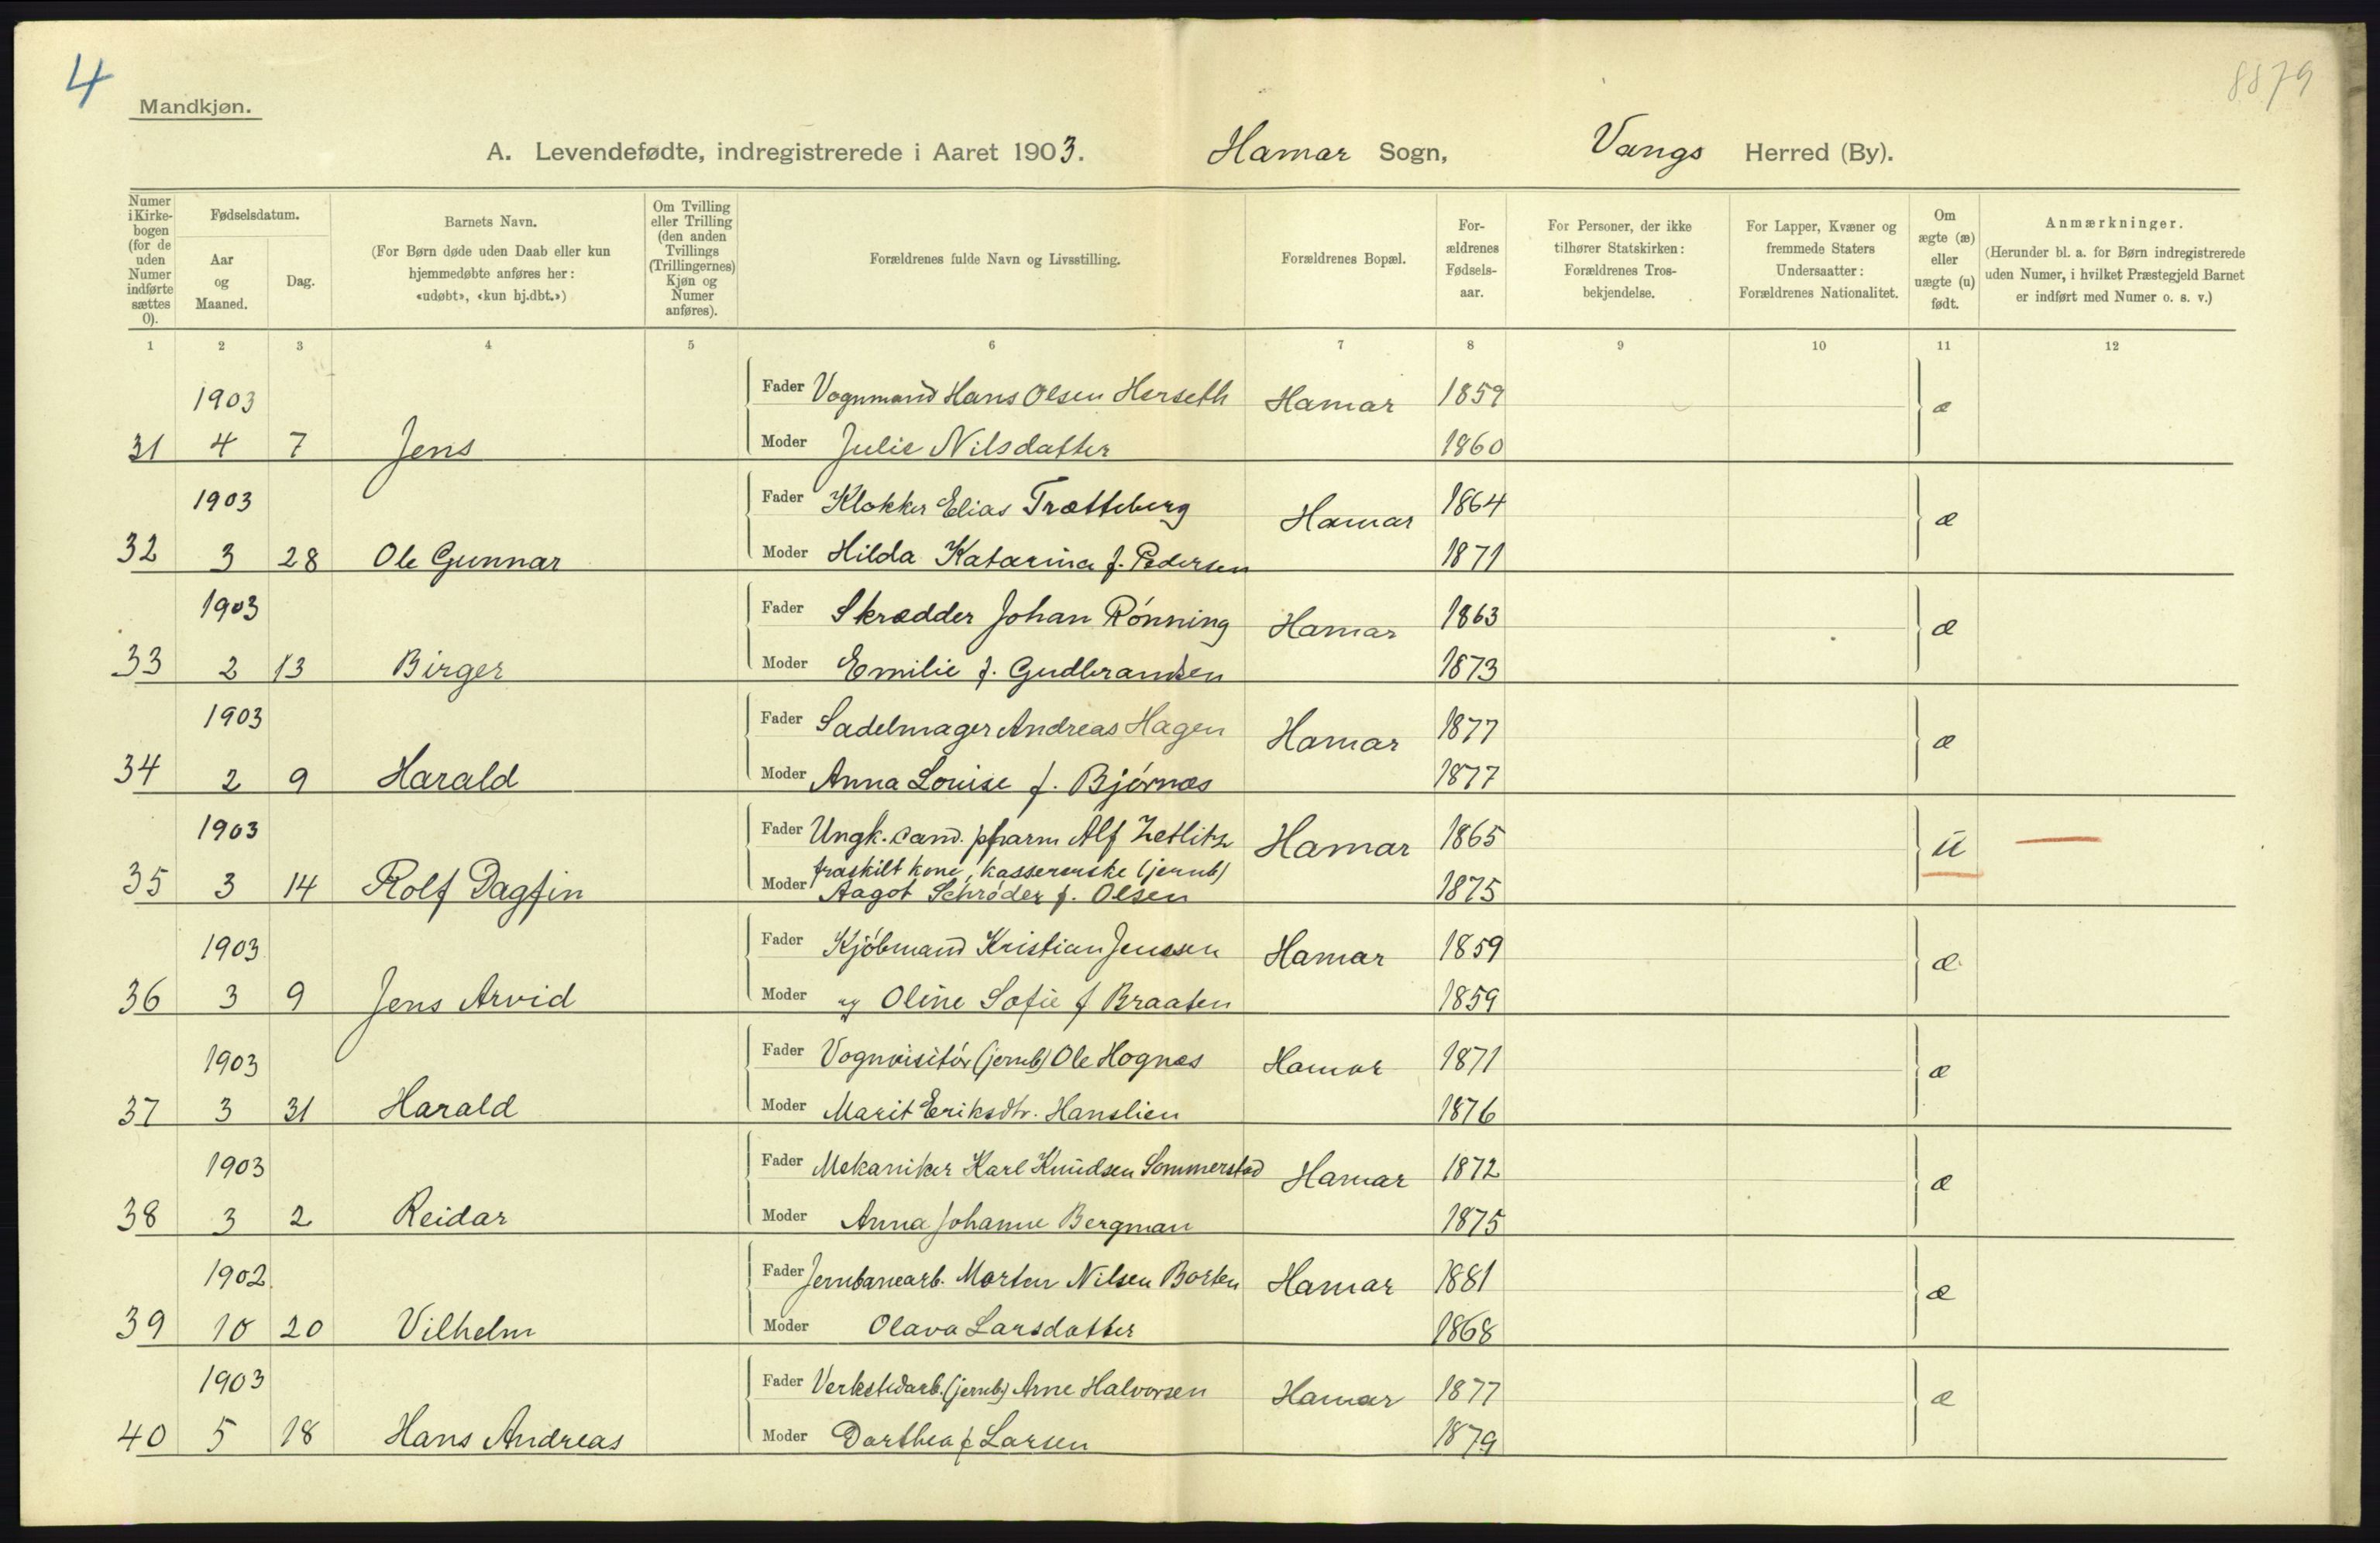 4
8879
Mandkjøn.
A. Levendefødte, indregistrerede i Aaret 1903. Hamar Sogn, Vangs Herred (By).
Numer i Kirkebogen (for de uden Numer indførte sættes 0).
Fødselsdatum.
Aar og Maaned.
Dag.
Barnets Navn.
(For Børn døde uden Daab eller kun hjemmedøbte anføres her: «udøbt», «kun hj.dbt.»)
Om Tvilling eller Trilling (den anden Tvillings (Trillingernes) Kjøn og Numer anføres).
Forældrenes fulde Navn og Livsstilling.
Forældrenes Bopæl.
Forældrenes Fødselsaar.
For Personer, der ikke tilhører Statskirken: Forældrenes Trosbekjendelse.
For Lapper, Kvæner og fremmede Staters Undersaatter: Forældrenes Nationalitet.
Om ægte (æ) eller uægte (u) født.
Anmærkninger.
(Herunder bl. a. for Børn indregistrerede uden Numer, i hvilket Præstegjeld Barnet er indført med Numer o. s. v.)
1 2 3 4 5 6 7 8 9 10 11 12
1903 Fader Vognmand Hans Olsen Herseth Hamar 1859 æ
31 4 7 Jens Moder Julie Nilsdatter 1860
1903 Fader Klokker Elias Trætteberg Hamar 1864 æ
32 3 28 Ole Gunnar Moder Hilda Katarina f. Pedersen 1871
1903 Fader Skrædder Johan Rønning Hamar 1863 æ
33 2 13 Birger Moder Emilie f. Gudbrandsen 1873
1903 Fader Sadelmager Andreas Hagen Hamar 1877 æ
34 2 9 Harald Moder Anna Louise f. Bjørnæs 1877
1903 Fader Ungk. cand. pharm Alf Zetlitz Hamar 1865 u
fraskilt kone, kassererske (jernb)
35 3 14 Rolf Dagfin Moder Aagot Schrøder f. Olsen 1875
1903 Fader Kjøbmand Kristian Jenssen Hamar 1859 æ
36 3 9 Jens Arvid Moder og Oline Sofie f Braaten 1859
1903 Fader Vognvisitør (jernb) Ole Hognæs Hamar 1871 æ
37 3 31 Harald Moder Marit Eriksdtr. Hanslien 1876
1903 Fader Mekaniker Karl Knudsen Sommerstad Hamar 1872 æ
38 3 2 Reidar Moder Anna Johanne Bergman 1875
1902 Fader Jernbanearb. Morten Nilsen Borten Hamar 1881 æ
39 10 20 Vilhelm Moder Olava Larsdatter 1868
1903 Fader Verkstedarb. (jernb) Arne Halvorsen Hamar 1877 æ
40 5 18 Hans Andreas Moder Dorthea f Larsen 1879